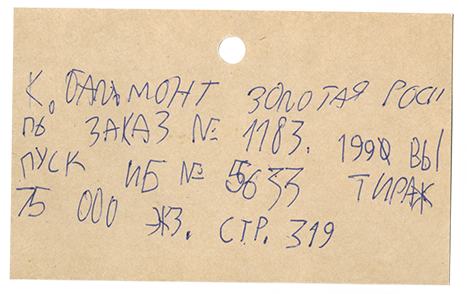 К. БАЛЬМОНТ ЗОЛОТАЯ РОСЫ
ПЬ ЗАКАЗ № 1183. 1990 ВЫ
ПУСК ИБ № 5633 ТИРАЖ
75 000 ЭКЗ. СТР. 319